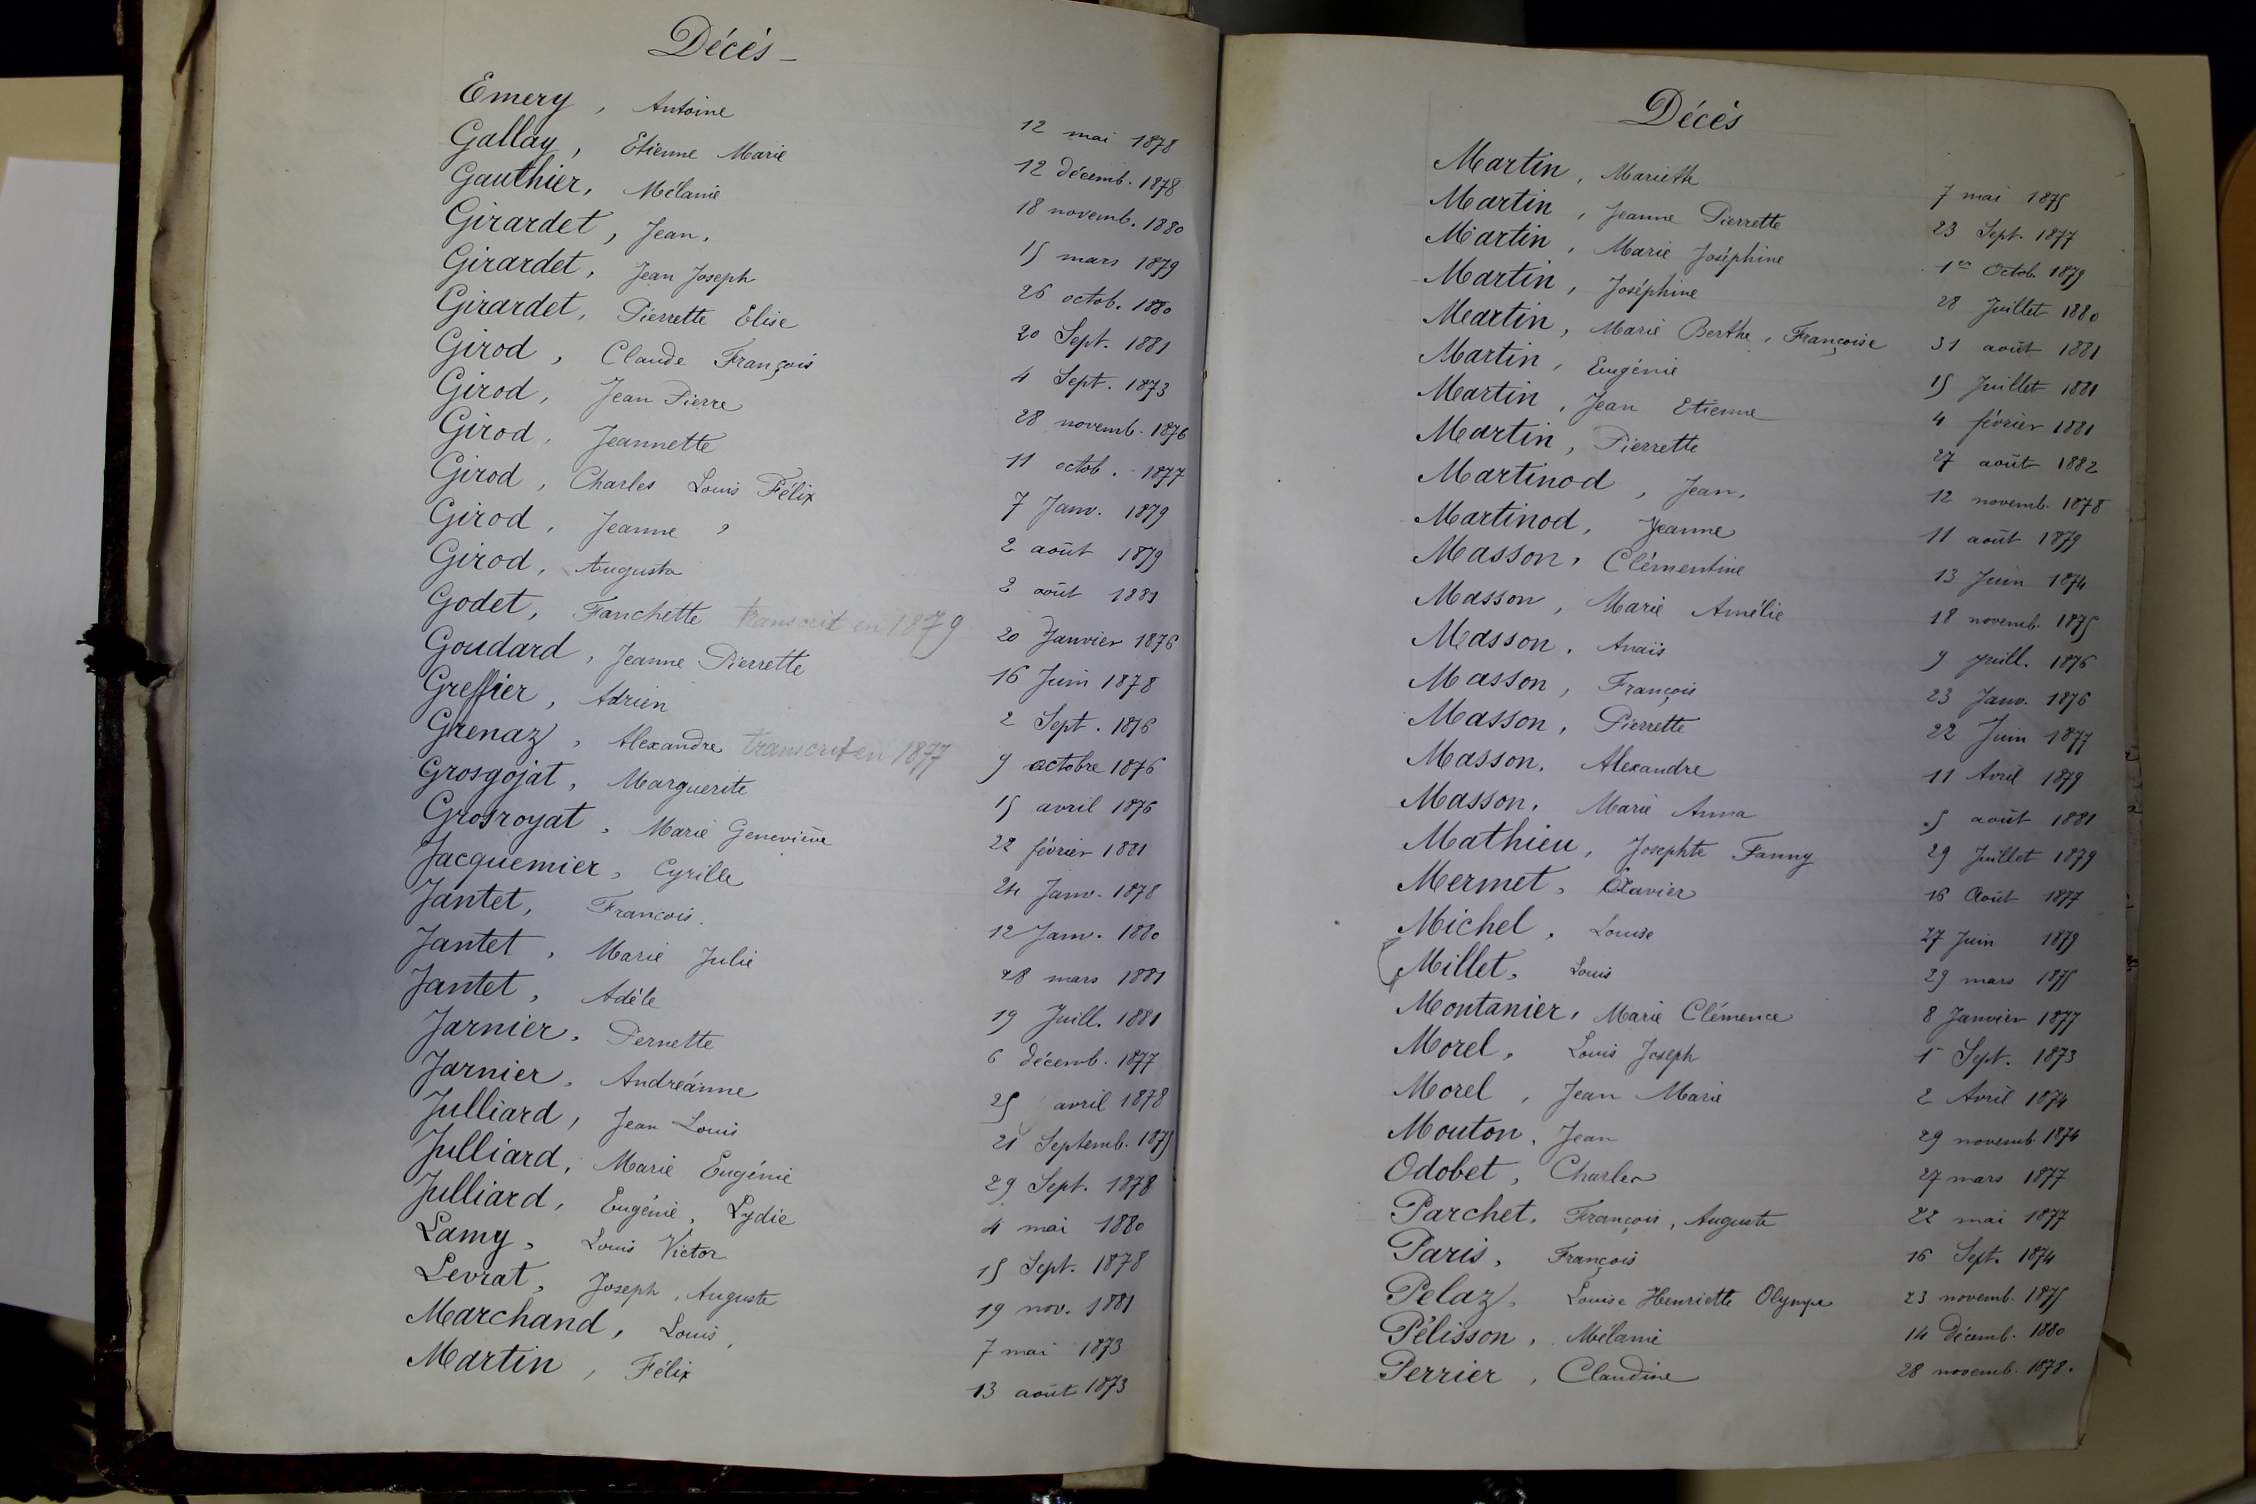 Décès -
Emery, Antoine 12 mai 1878
Gallay, Etienne Marie 12 décemb. 1878
Gauthier, Mélanie 18 novemb. 1880
Girardet, Jean. 15 mars 1879
Girardet, Jean Joseph 26 octob. 1880
Girardet, Pierrette Elise 20 Sept. 1881
Girod, Claude François 4 Sept. 1873
Girod, Jean Pierre 28 novemb. 1876
Girod, Jeannette 11 octob. 1877
Girod, Charles Louis Félix 7 Janv. 1879
Girod, Jeanne, 2 août 1879
Girod, Augusta 2 août 1881
Godet, Fanchette transcrit en 1879 20 Janvier 1876
Goudard, Jeanne Pierrette 16 Juin 1878
Greffier, Adrien 2 Sept. 1876
Grenaz, Alexandre transcrit en 1877 9 octobre 1876
Grosgojat, Marguerite 15 avril 1876
Grosroyat, Marie Geneviève 22 février 1881
Jacquemier, Cyrille 24 Janv. 1878
Jantet, Francois. 12 Janv. 1880
Jantet, Marie Julie 28 mars 1881
Jantet, Adèle 19 Juill. 1881
Jarnier, Pernette 6 décemb. 1877
Jarnier, Andréanne 25 avril 1878
Julliard, Jean Louis 21 Septemb. 1875
Julliard, Marie Eugénie 29 Sept. 1878
Julliard, Eugénie, Lydie 4 mai 1880
Lamy, Louis Victor 15 Sept. 1878
Levrat, Joseph, Auguste 19 nov. 1881
Marchand, Louis, 7 mai 1873
Martin, Félix 13 août 1873
Décès
Martin, Marieth 7 mai 1875
Martin, Jeanne Pierrette 23 Sept. 1877
Martin, Marie Joséphine 1er Octob. 1879
Martin, Joséphine 28 Juillet 1880
Martin, Marie Berthe, Françoise 31 août 1881
Martin, Eugénie 15 Juillet 1881
Martin, Jean Etienne 4 février 1881
Martin, Pierrette 27 août 1882
Martinod, Jean. 12 novemb. 1878
Martinod, Jeanne 11 août 1879
Masson, Clémentine 13 Juin 1874
Masson, Marie Amélie 18 novemb. 1875
Masson, Anaïs 9 juill. 1876
Masson, François 23 Janv. 1876
Masson, Pierrette 22 Juin 1877
Masson, Alexandre 11 Avril 1879
Masson, Marie Anna 5 août 1881
Mathieu, Josephte Fanny 29 Juillet 1879
Mermet, Xavier 16 Août 1877
Michel, Louise 27 Juin 1879
Millet, Louis 29 mars 1875
Montanier, Marie Clémence 8 Janvier 1877
Morel, Louis Joseph 1er Sept. 1873
Morel, Jean Marie 2 Avril 1874
Mouton, Jean 29 novemb 1874
Odobet, Charles 27 mars 1877
Parchet, François, Auguste 22 mai 1877
Paris, François 16 Sept. 1874
Pelaz, Louise Henriette Olympe 23 novemb. 1875
Pélisson, Mélanie 14 Décemb. 1880
Perrier, Claudine 28 novemb. 1878.